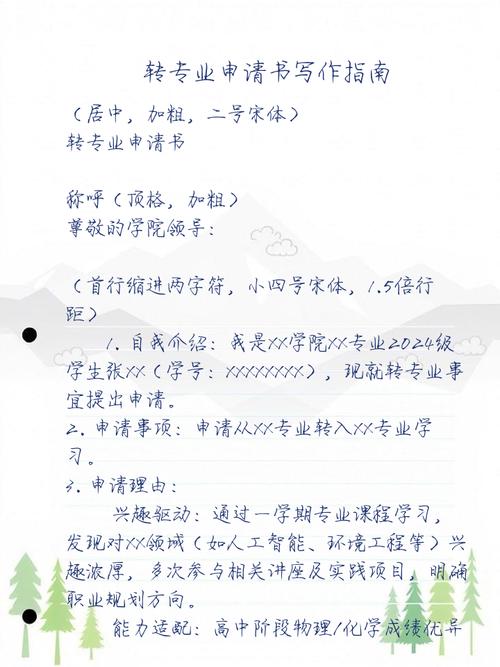 转专业申请书写作指南
（居中，加粗，二号宋体）
转专业申请书
称呼（顶格，加粗）
尊敬的学院领导：
（首行缩进两字符，小四号宋体，1.5倍行
距）
1. 自我介绍：我是XX学院XX专业2024级
学生张XX（学号：XXXXXXXX），现就转专业事
宜提出申请。
2. 申请事项：申请从XX专业转入XX专业学
习。
3. 申请理由：
兴趣驱动：通过一学期专业课程学习，
发现对XX领域（如人工智能、环境工程等）兴
趣浓厚，多次参与相关讲座及实践项目，明确
职业规划方向。
能力适配：高中阶段物理/化学成绩优异